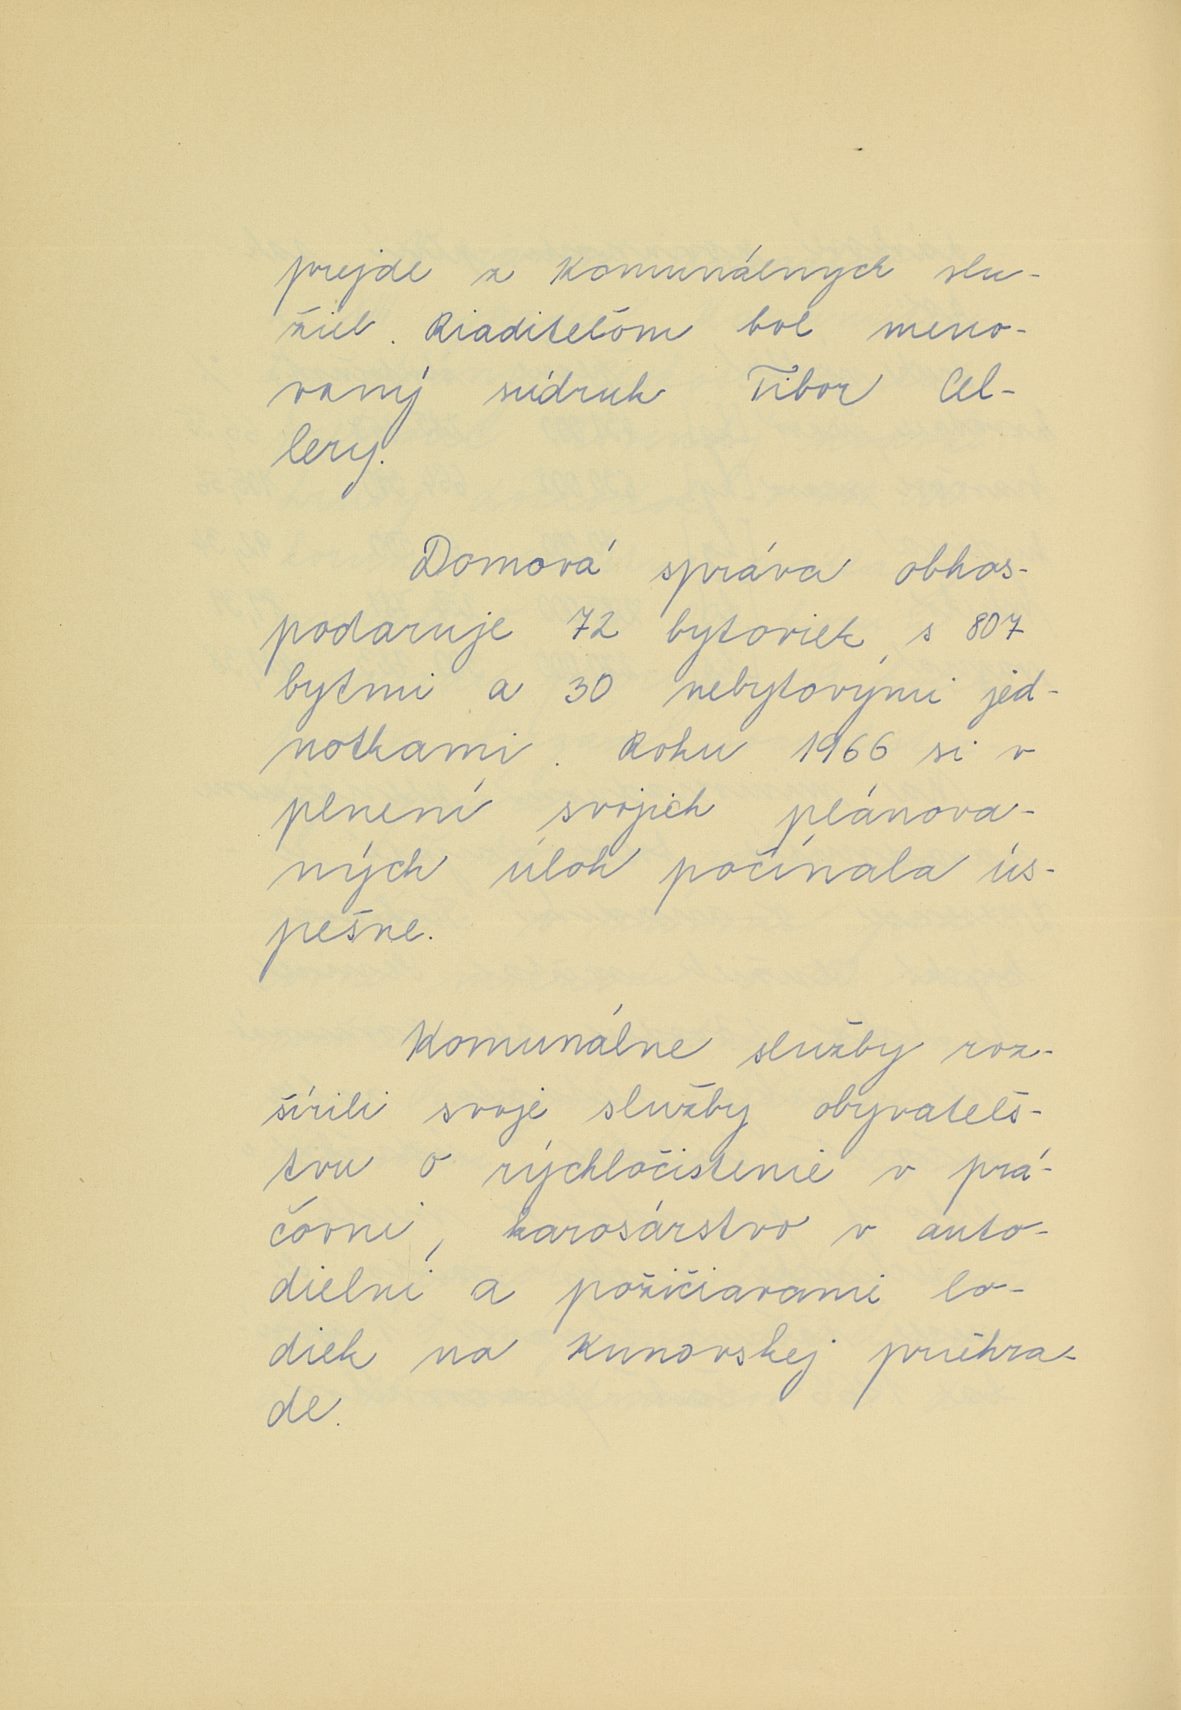 prejde z Komunálnych slu-
žieb. Riaditeľom bol meno-
vaný súdruh Tibor Cel-
lery.
Domová správa obhos-
podaruje 72 bytoviek, s 807
bytmi a 30 nebytovými jed-
notkami. Roku 1966 si v
plnení svojich plánova-
ných úloh počínala ús-
pešne.
Komunálne služby roz-
šírili svoje služby obyvateľs-
tvu o rýchločistenie v prá-
čovni, karosárstvo v auto-
dielni a požičiavanie lo-
diek na Kunovskej priehra-
de.